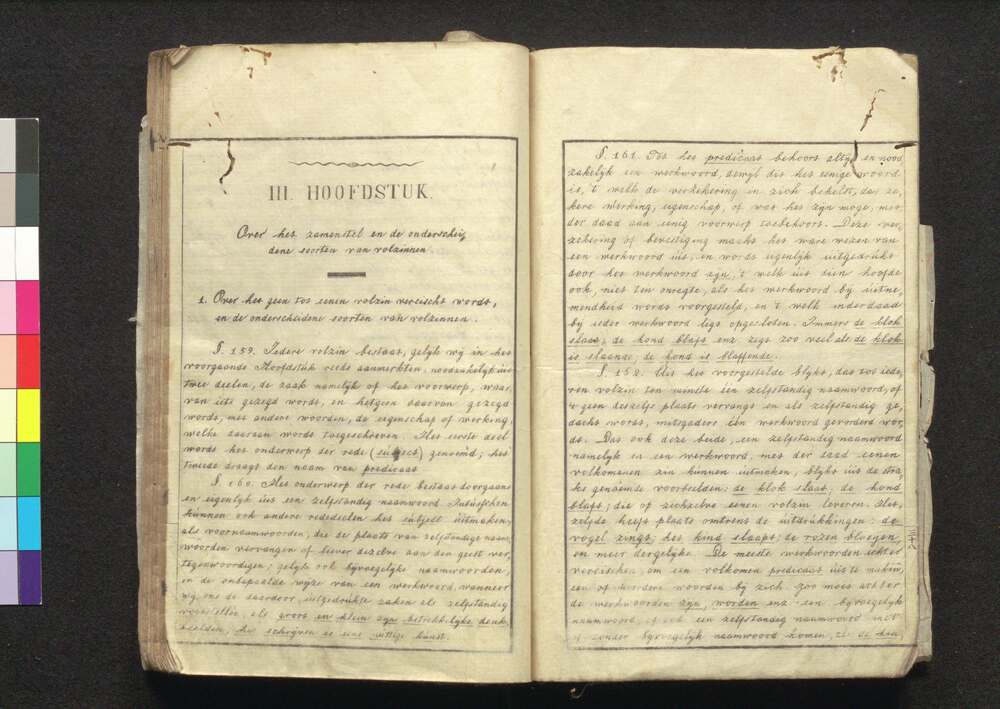 III. HOOFDSTUK.
Over het zamenstel en de onderschei,
dene soorten van volzinnen.
1. Over het geen tot eenen volzin vereischt wordt,
en de onderscheidene soorten van volzinnen.
§. 159. Iedere volzin bestaat, gelijk wij in het
voorgaande Hoofdstuk reeds aanmerkten, noodzakelijk uit
twee deelen, de zaak namelijk of het voorwerp, waar,
van iets gezegd wordt, en hetgeen daarvan gezegd
wordt, met andere woorden, de eigenschap of werking,
welke daaraan wordt toegeschreven. Het eerste deel
wordt het onderwerp der rede (subject) genoemd; het
tweede draagt den naam van predicaat.
§. 160. Het onderwerp der rede bestaat doorgaans
en eigenlyk uit een zelfstandig naamwoord. Intusschen
kunnen ook andere rededeelen het subject uitmaken,
als voornaamwoorden, die de plaats van zelfstandige naam,
woorden vervangen of liever dezelve aan den geest ver,
tegenwoordigen; gelyk ook byvoegelyke naamwoorden,
en de onbepaalde wyze van een werkwoord, wanneer
wy ons de daardoor uitgedrukte zaken als zelfstandig
voorstellen, als groot en klein zyn betrekkelyke denk,
beelden, het schryven is eene nuttige kunst.
§. 161. Tot het predicaat behoort altyd en nood,
zakelyk een werkwoord, dewyl dit het eenige woord
is, 't welk de verzekering in zich behelst, dat ze,
kere werking, eigenschap, of wat het zyn moge, met
der daad aan eenig voorwerp toebehoort. Deze ver,
zekering of bevestiging maakt het ware wezen van
een werkwoord uit, en wordt eigenlyk uitgedrukt
door het werkwoord zyn, 't welk uit dien hoofde
ook, niet ten onregte, als het werkwoord by uitne,
mendheid wordt voorgesteld, en 't welk inderdaad
by ieder werkwoord ligt opgesloten. Immers de klok
slaat, de hond blaft enz zegt zoo veel als de klok
is slaande; de hond is blaffende.
§. 162. Uit het voorgestelde blykt, dat tot iede,
ren volzin ten minste een zelfstandig naamwoord, of
't geen deszelfs plaats vervangt en als zelfstandig ge,
dacht wordt, mitsgaders een werkwoord gevorderd wor,
de. Dat ook deze beide, een zelfstandig naamwoord
namelyk en een werkwoord, met der daad eenen
volkomenen zin kunnen uitmaken, blykt uit de stra,
ks genoemde voorbeelden: de klok slaat, de hond
blaft; die op zichzelve eenen volzin leveren. Het,
zelfde heeft plaats omtrent de uitdrukkingen: de
vogel zingt, het kind slaapt; de rozen bloeijen,
en meer dergelyke. De meeste werkwoorden echter
vereischen, om een volkomen predicaat uit te maken,
een of meerdere woorden by zich. Zoo moet achter
de werkwoorden zyn, worden enz een byvoegelyk
naamwoord, of ook een zelfstandig naamwoord met
of zonder byvoegelyk naamwoord komen, zal de